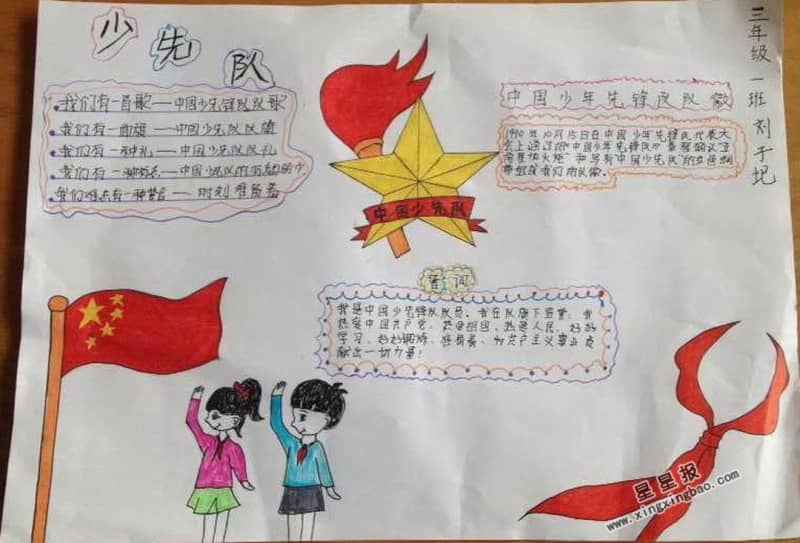 少先队
我们有一首歌——中国少先锋队队歌
我们有一面旗——中国少先队队旗
我们有一种礼——中国少先队队礼
我们有一种
我们 有一种誓言——时刻准备着
中国少先队
中国少年先锋队队徽
年10月 日在中国少年先锋队代表大
会上通过的《中国少年先锋队》
火炬 和写有中国少先队的
我们
誓词
我是中国少年先锋队队员。我在队旗下宣誓：我
热爱中国共产党、热爱祖国、热爱人民，好好
学习、好好锻炼、准备着，为共产主义事业贡
献出一切力量！
三年级一班 刘子
星星报
www.xingxingbao.com